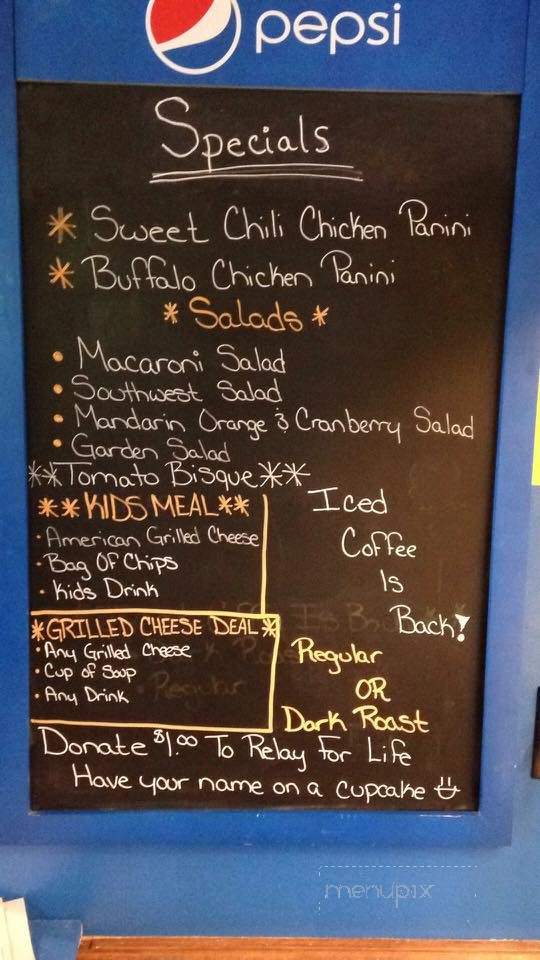 pepsi
Specials
* Sweet Chili Chicken Panini
* Buffalo Chicken Panini
* Salads *
• Macaroni Salad
• Southwest Salad
• Mandarin Orange & Cranberry Salad
• Garden Salad
**Tomato Bisque**
**KIDS MEAL**
• American Grilled Cheese
• Bag Of Chips
• Kids Drink
Iced
Coffee
Is
Back!
Regular
OR
Dark Roast
*GRILLED CHEESE DEAL*
• Any Grilled Cheese
• Cup of Soup
• Any Drink
Donate $1.00 To Relay For Life
Have your name on a cupcake
menupix